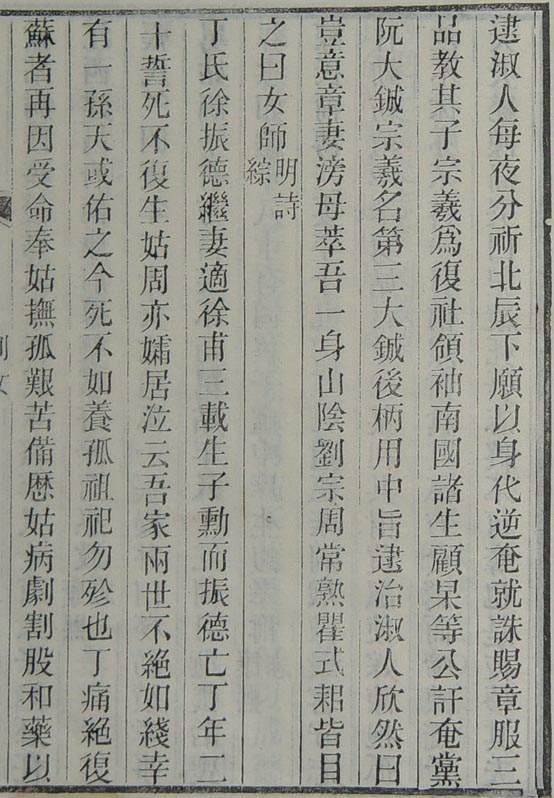 逮淑人每夜分祈北辰下願以身代逆奄就誅賜章服三
品教其子宗羲爲復社領袖南國諸生顧杲等公訐奄黨
阮大鋮宗羲名第三大鋮後柄用中旨逮治淑人欣然曰
豈意章妻滂母萃吾一身山陰劉宗周常熟瞿式耜皆目
之曰女師明詩
綜
丁氏徐振德繼妻適徐甫三載生子勳而振德亡丁年二
十誓死不復生姑周亦孀居泣云吾家兩世不絶如綫幸
有一孫天或佑之今死不如養孤祖祀勿殄也丁痛絶復
蘇者再因受命奉姑撫孤艱苦備歷姑病劇割股和藥以
列女